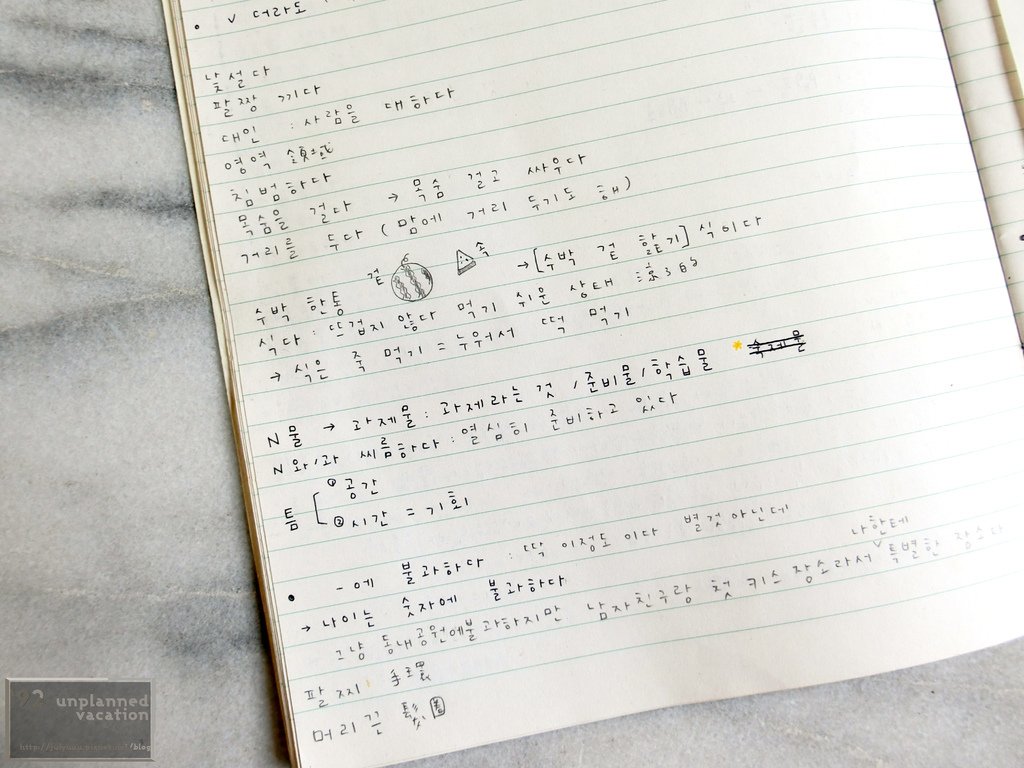 • V 더라도
낯설다
팔짱 끼다
대인 : 사람을 대하다
영역
침범하다
목숨을 걸다 → 목숨 걸고 싸우다
거리를 두다 (맘에 거리 두기도 해)
겉 속
수박 한통 → [수박 겉 핥기] 식이다
식다 : 뜨겁지 않다 먹기 쉬운 상태 涼了的
→ 식은 죽 먹기 = 누워서 떡 먹기
N물 → 과제물 : 과제라는 것 / 준비물 / 학습물
N와/과 씨름하다 : 열심히 준비하고 있다
틈 ① 공간
② 시간 = 기회
• -에 불과하다 : 딱 이정도 이다 별것 아닌데
→ 나이는 숫자에 불과하다
그냥 동내공원에불과하지만 남자친구랑 첫 키스 장소라서 나한테 특별한 장소다
팔찌 手
머리끈
unplanned
vacation